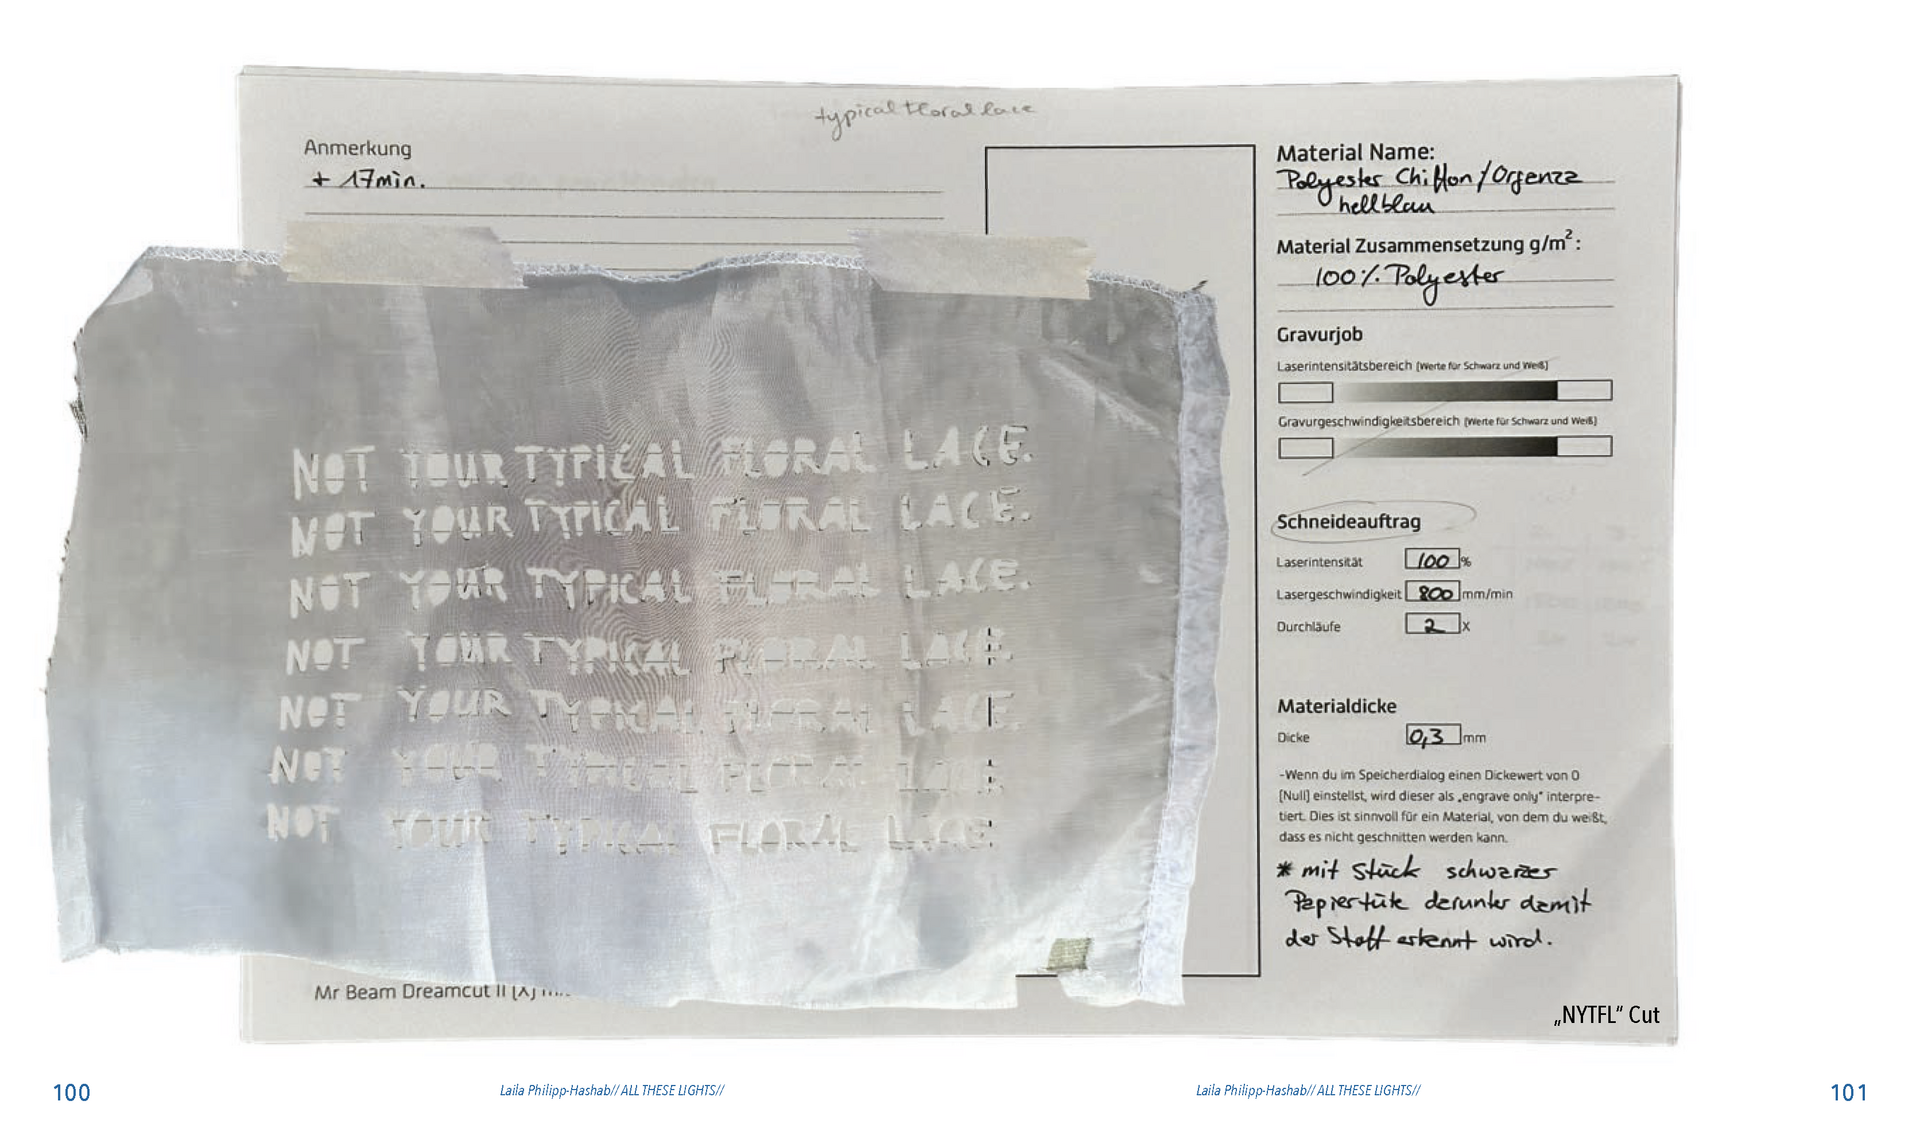 typical floral lace
Anmerkung
+ 17min.
Material Name:
Polyester Chiffon/Organza
hellblau
Material Zusammensetzung g/m²:
100% Polyester
Gravurjob
Laserintensitätsbereich (Werte für Schwarz und Weiß)
Gravurgeschwindigkeitsbereich (Werte für Schwarz und Weiß)
NOT YOUR TYPICAL FLORAL LACE.
NOT YOUR TYPICAL FLORAL LACE.
NOT YOUR TYPICAL FLORAL LACE.
NOT YOUR TYPICAL FLORAL LACE.
NOT YOUR TYPICAL FLORAL LACE.
NOT YOUR TYPICAL FLORAL LACE.
NOT YOUR TYPICAL FLORAL LACE.
Schneideauftrag
Laserintensität 100 %
Lasergeschwindigkeit 800 mm/min
Durchläufe 2 x
Materialdicke
Dicke 0,3 mm
-Wenn du im Speicherdialog einen Dickewert von 0
(Null) einstellst, wird dieser als „engrave only" interpre-
tiert. Dies ist sinnvoll für ein Material, von dem du weißt,
dass es nicht geschnitten werden kann.
* mit Stück schwarzer
Papiertüte darunter damit
der Stoff erkennt wird.
Mr Beam Dreamcut II (x)
„NYTFL“ Cut
100
Laila Philipp-Hashab// ALL THESE LIGHTS//
Laila Philipp-Hashab// ALL THESE LIGHTS//
101